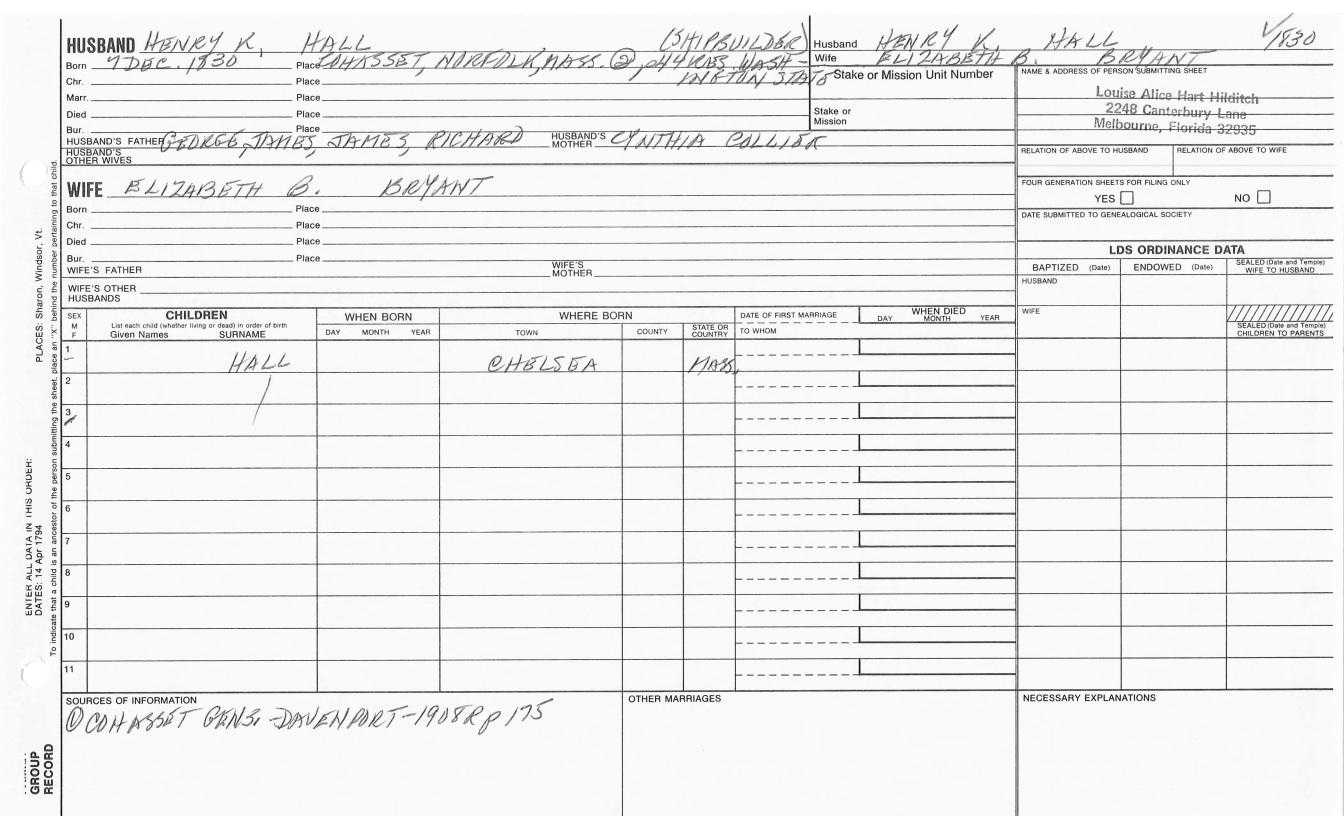 HUSBAND HENRY K. HALL (SHIPBUILDER)
Born 7 DEC. 1830 Place COHASSET, NORFOLK, MASS. ②, RES. WASH-
INGTON STATE
Chr. Place
Marr. Place
Died Place
Bur. Place
HUSBAND'S FATHER GEORGE JAMES, JAMES, RICHARD HUSBAND'S MOTHER CYNTHIA COLLIER
HUSBAND'S OTHER WIVES
Husband HENRY K. HALL 1830
Wife ELIZABETH B. BRYANT
Stake or Mission Unit Number
Stake or Mission
NAME & ADDRESS OF PERSON SUBMITTING SHEET
Louise Alice Hart Hilditch
2248 Canterbury Lane
Melbourne, Florida 32935
RELATION OF ABOVE TO HUSBAND RELATION OF ABOVE TO WIFE
FOUR GENERATION SHEETS FOR FILING ONLY
YES NO
DATE SUBMITTED TO GENEALOGICAL SOCIETY
WIFE ELIZABETH B. BRYANT
Born Place
Chr. Place
Died Place
Bur. Place
WIFE'S FATHER WIFE'S MOTHER
WIFE'S OTHER HUSBANDS
LDS ORDINANCE DATA
BAPTIZED (Date) ENDOWED (Date) SEALED (Date and Temple) WIFE TO HUSBAND
HUSBAND
WIFE
SEALED (Date and Temple) CHILDREN TO PARENTS
SEX M F
CHILDREN
List each child (whether living or dead) in order of birth
Given Names SURNAME
WHEN BORN
DAY MONTH YEAR
WHERE BORN
TOWN COUNTY STATE OR COUNTRY
DATE OF FIRST MARRIAGE
TO WHOM
WHEN DIED
DAY MONTH YEAR
1 HALL CHELSEA MASS.
2
3
4
5
6
7
8
9
10
11
SOURCES OF INFORMATION
① COHASSET GENS. -DAVENPORT-1908R p 175
OTHER MARRIAGES
NECESSARY EXPLANATIONS
ENTER ALL DATA IN THIS ORDER:
DATES: 14 Apr 1794
PLACES: Sharon, Windsor, Vt.
To indicate that a child is an ancestor of the person submitting the sheet, place an "X" behind the number pertaining to that child.
GROUP
RECORD